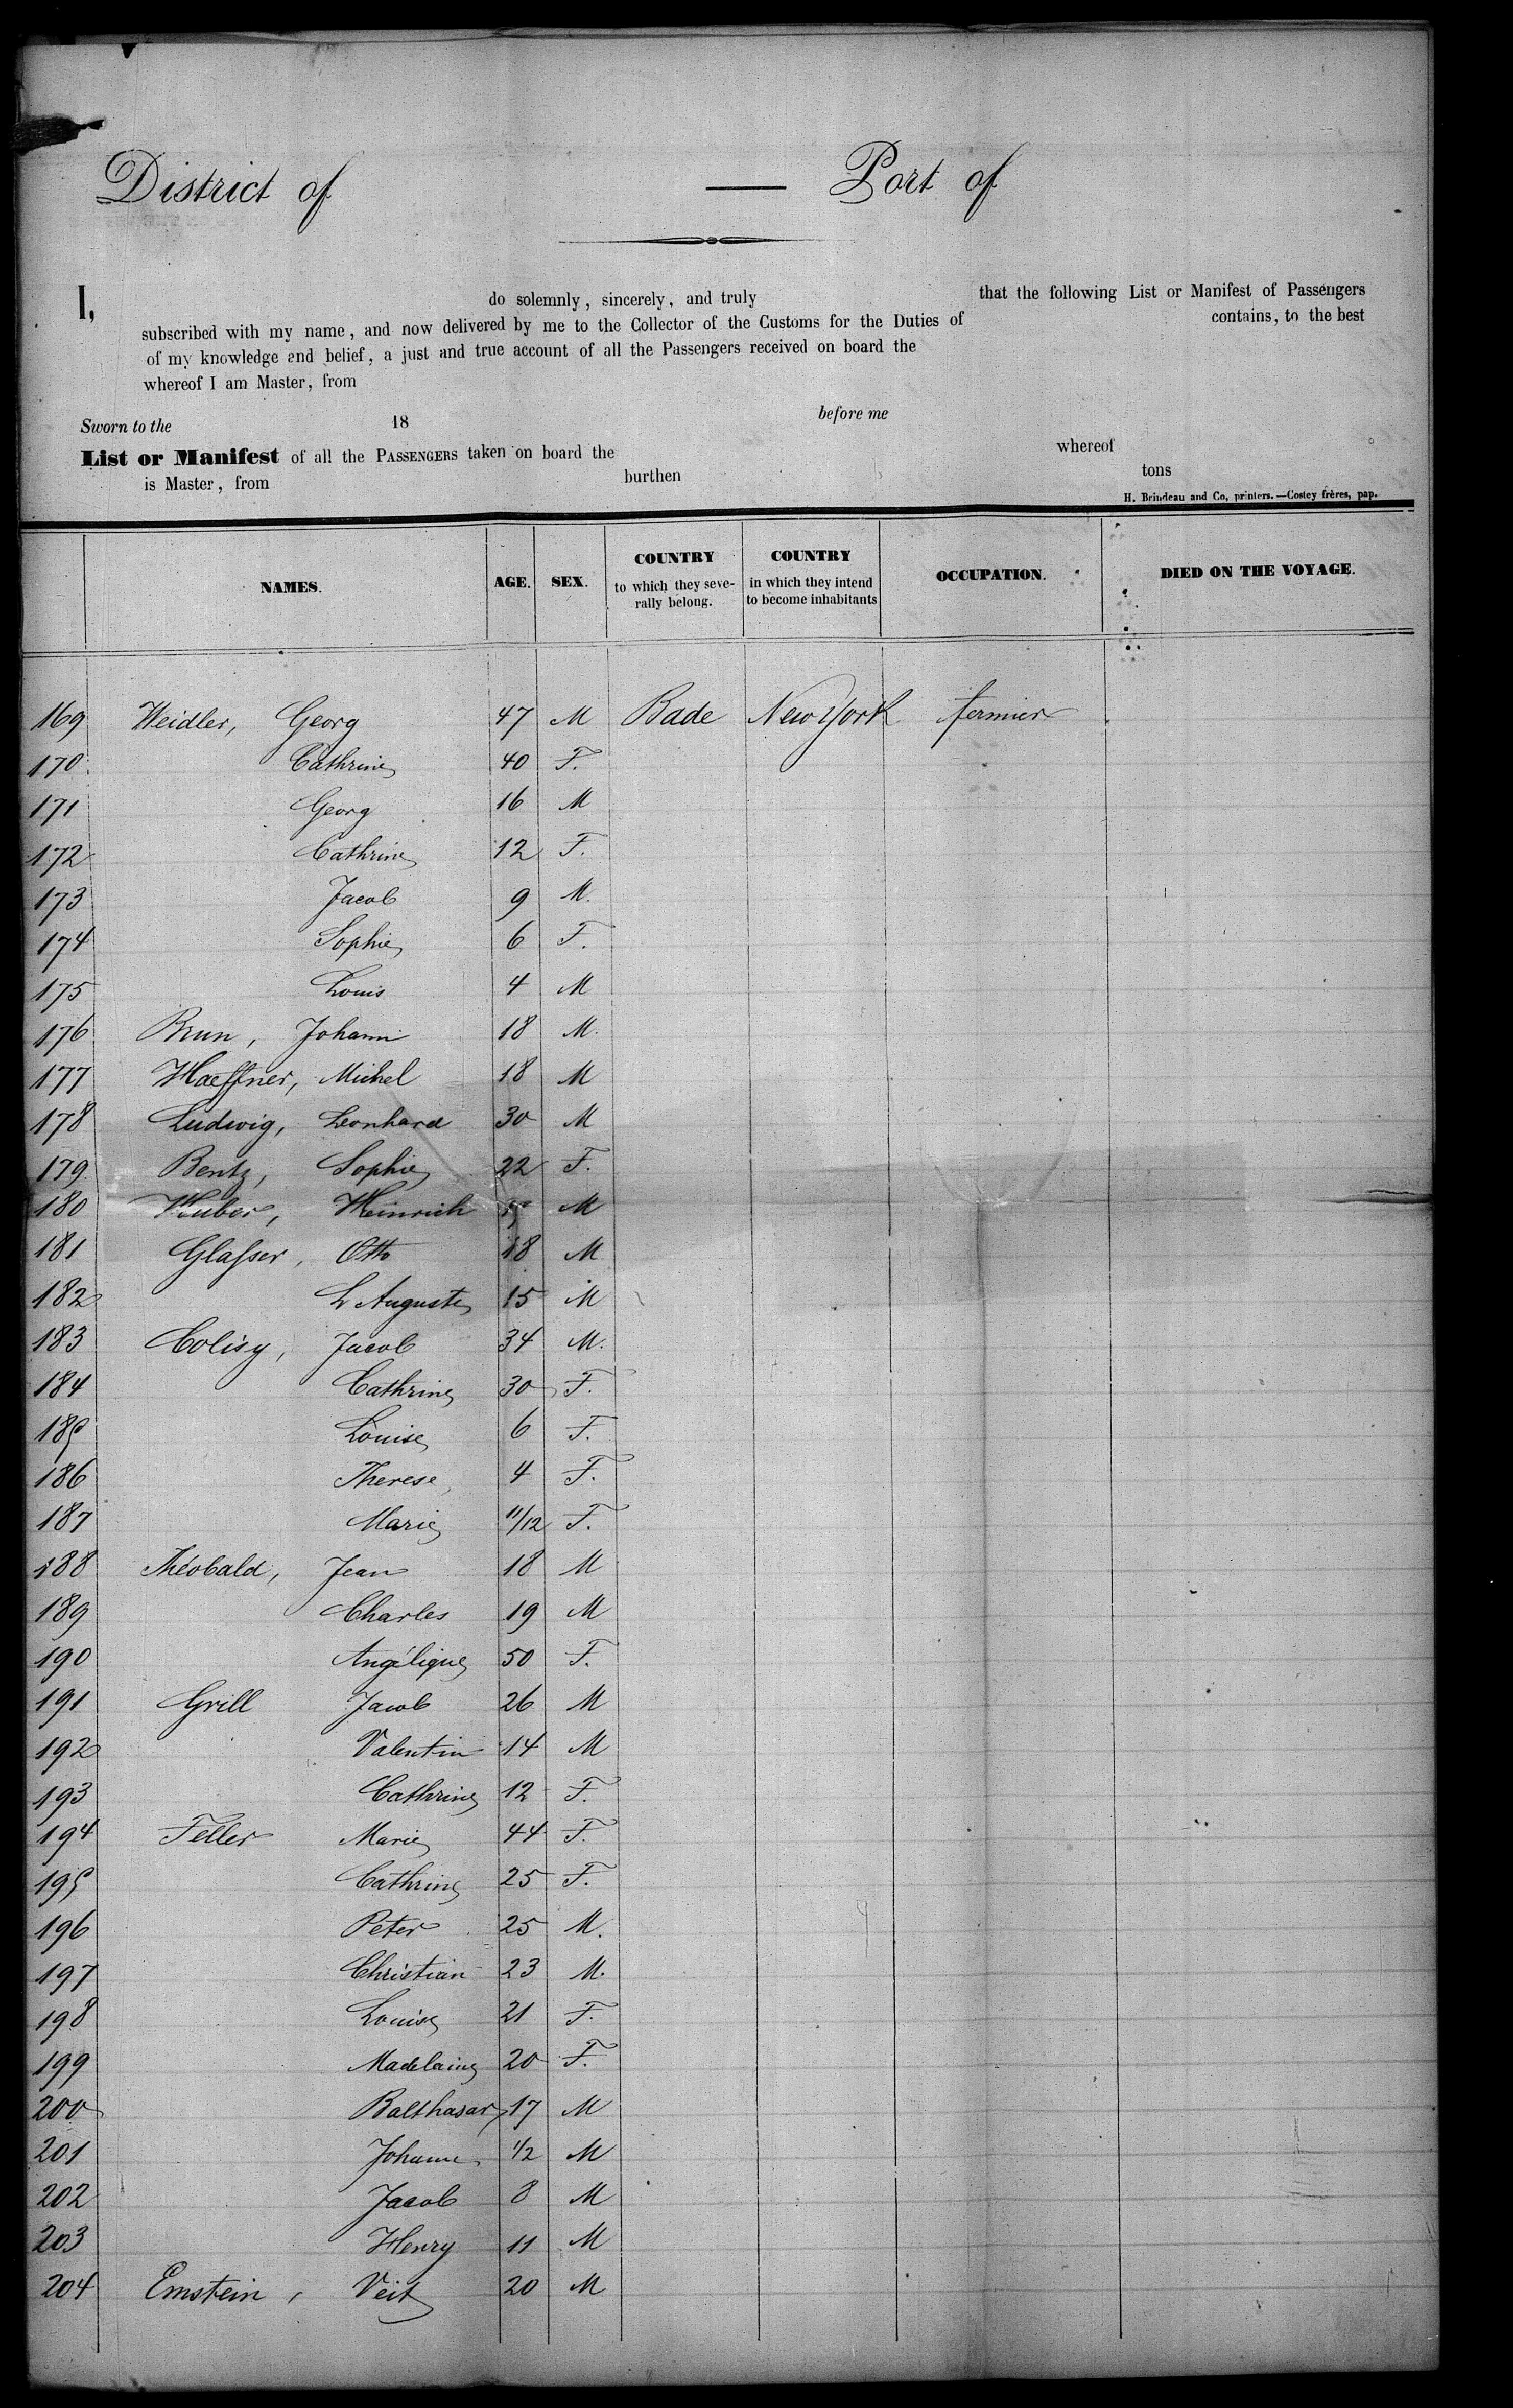 District of — Port of
I, do solemnly, sincerely, and truly that the following List or Manifest of Passengers
subscribed with my name, and now delivered by me to the Collector of the Customs for the Duties of contains, to the best
of my knowledge and belief, a just and true account of all the Passengers received on board the
whereof I am Master, from
Sworn to the 18 before me
List or Manifest of all the PASSENGERS taken on board the whereof
is Master, from burthen tons
H. Brindeau and Co, printers.—Costey frères, pap.
NAMES. AGE. SEX. COUNTRY to which they seve-rally belong. COUNTRY in which they intend to become inhabitants OCCUPATION. DIED ON THE VOYAGE.
169 Weidler, Georg 47 M Bade New York fermier
170 Cathrine 40 F.
171 Georg 16 M
172 Cathrine 12 F.
173 Jacob 9 M.
174 Sophie 6 F.
175 Louis 4 M
176 Brun, Johann 18 M.
177 Haeffner, Michel 18 M
178 Ludwig, Leonhard 30 M
179 Bentz, Sophie 22 F.
180 Huber, Heinrich M
181 Glasser, Otto 18 M
182 L Auguste 15 M
183 Colisy, Jacob 34 M.
184 Cathrine 30 F.
185 Louise 6 F.
186 Therese, 4 F.
187 Marie 11/12 F.
188 Théobald, Jean 18 M
189 Charles 19 M
190 Angélique 50 F.
191 Grill Jacob 26 M
192 Valentin 14 M
193 Cathrine 12 F.
194 Feller Marie 44 F.
195 Cathrine 25 F.
196 Peter 25 M.
197 Christian 23 M.
198 Louise 21 F.
199 Madelaine 20 F.
200 Balthasar, 17 M
201 Johann 1/2 M
202 Jacob 8 M
203 Henry 11 M
204 Ernstein, Veit 20 M